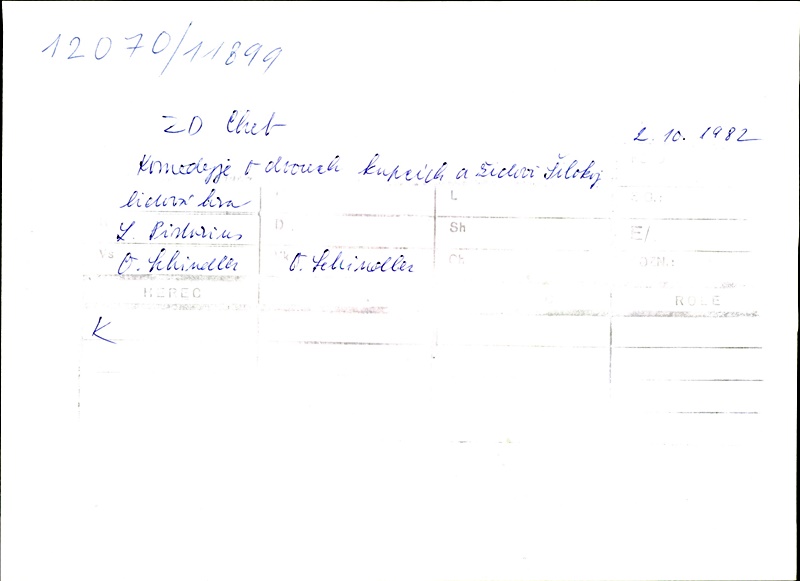 12070/11899
ZD Cheb 2. 10. 1982
Komedyje o dvouch kupcích a Židovi Šilokoj
lidová hra L
L. Pistorius D Sh E/
O. Schindler O. Schindler
HEREC ROLE
K